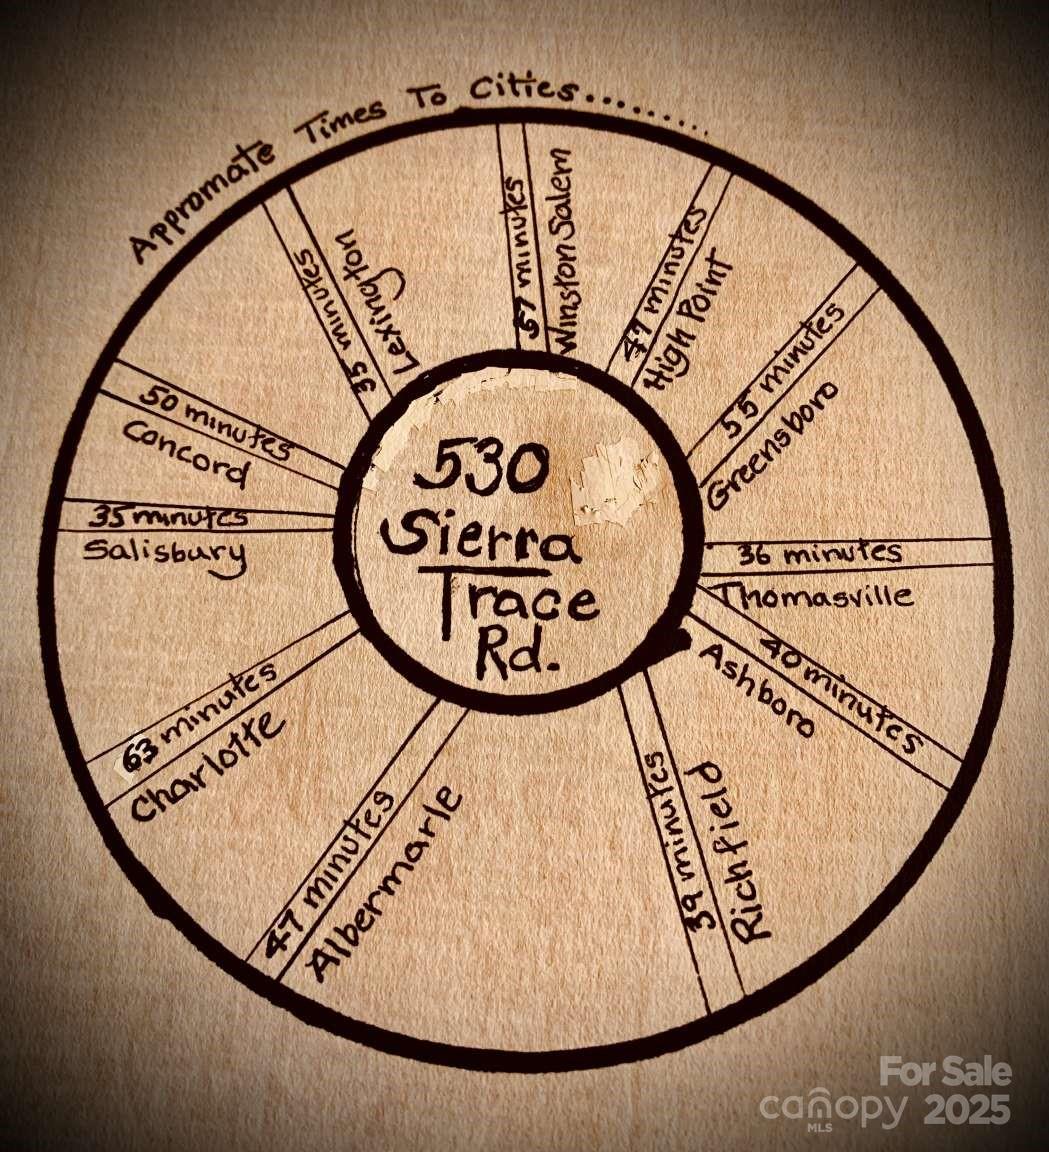 Appromate Times To Cities..........
35 minutes
Lexington
57 minutes
Winston Salem
47 minutes
High Point
55 minutes
Greensboro
36 minutes
Thomasville
40 minutes
Ashboro
39 minutes
Richfield
47 minutes
Albermarle
63 minutes
Charlotte
35 minutes
Salisbury
50 minutes
Concord
530
Sierra
Trace
Rd.
For Sale
canopy 2025
MLS